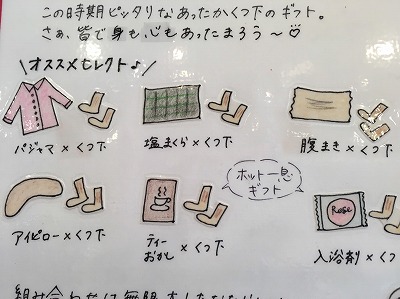 この時期ピッタリなあったかくつ下のギフト。
さぁ、皆で身も心もあったまろう〜♡
\オススメセレクト♪/
パジャマ×くつ下
塩まくら×くつ下
腹まき×くつ下
アイピロー×くつ下
ティー
おかし×くつ下
ホット一息
ギフト
Rose
入浴剤×くつ下
組み合わせは無限